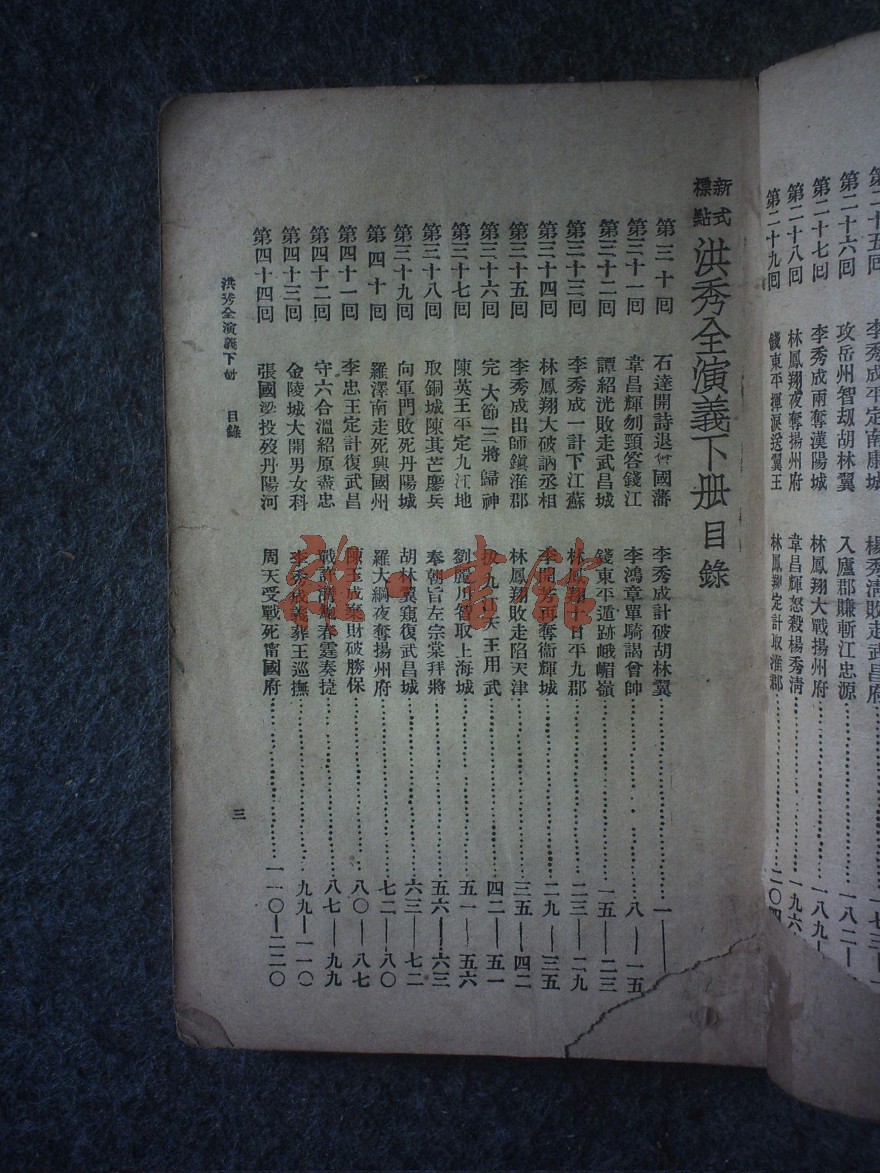 第二十五回 李秀成平定南康城 楊秀清敗走武昌府
第二十六回 攻岳州智刼胡林翼 入廬郡賺斬江忠源 一八二
第二十七回 李秀成兩奪漢陽城 林鳳翔大戰揚州府 一八九
第二十八回 林鳳翔夜奪揚州府 韋昌輝怒殺楊秀清 一九六
第二十九回 錢東平揮淚送翼王 林鳳翔定計取淮郡 二〇四
新式標點 洪秀全演義下册目錄
第三十回 石達開詩退曾國藩 李秀成計破胡林翼 一
第三十一回 韋昌輝刎頸答錢江 李鴻章單騎謁曾帥 八—一五
第三十二回 譚紹洸敗走武昌城 錢東平遁跡峨嵋嶺 一五—二三
第三十三回 李秀成一計下江蘇 林鳳翔十日平九郡 二三—二九
第三十四回 林鳳翔大破訥丞相 李開芳再奪衞輝城 二九—三五
第三十五回 李秀成出師鎭淮郡 林鳳翔敗走陷天津 三五—四二
第三十六回 完大節三將歸神 拔九江天王用武 四二—五一
第三十七回 陳英王平定九江地 劉麗川智取上海城 五一—五六
第三十八回 取銅城陳其芒鏖兵 奉朝旨左宗棠拜將 五六—六三
第三十九回 向軍門敗死丹陽城 胡林翼窺復武昌城 六三—七二
第四十回 羅澤南走死興國州 羅大綱夜奪揚州府 七二—八〇
第四十一回 李忠王定計復武昌 陳玉成棄財破勝保 八〇—八七
第四十二回 守六合溫紹原盡忠 戰許灣鮑春霆奏捷 八七—九九
第四十三回 金陵城大開男女科 李秀成義葬王巡撫 九九—一一〇
第四十四回 張國梁投歿丹陽河 周天受戰死甯國府 一一〇—二二〇
洪秀全演義下册 目錄
三
雅一書館